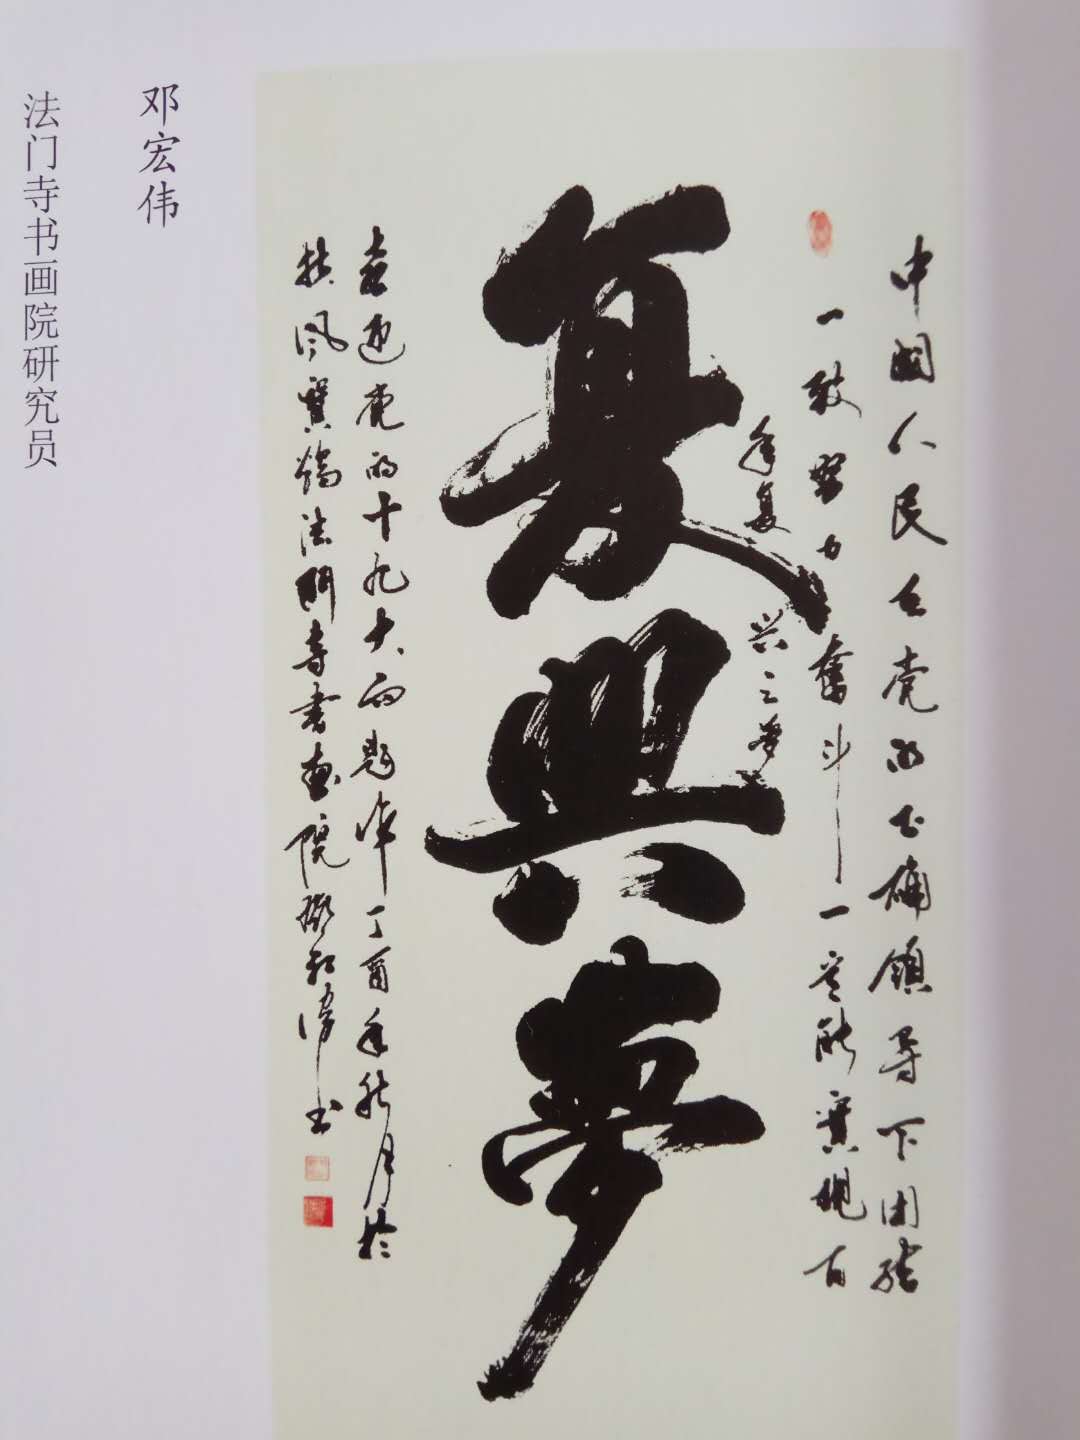 中國人民在党的正确領导下团结
一致努力奮斗一定能實現百
年复兴之梦
复興夢
喜迎党的十九大而题 丁酉年秋月於
扶風寶鷄法門寺書画院邓宏偉书
邓宏伟
法门寺书画院研究员